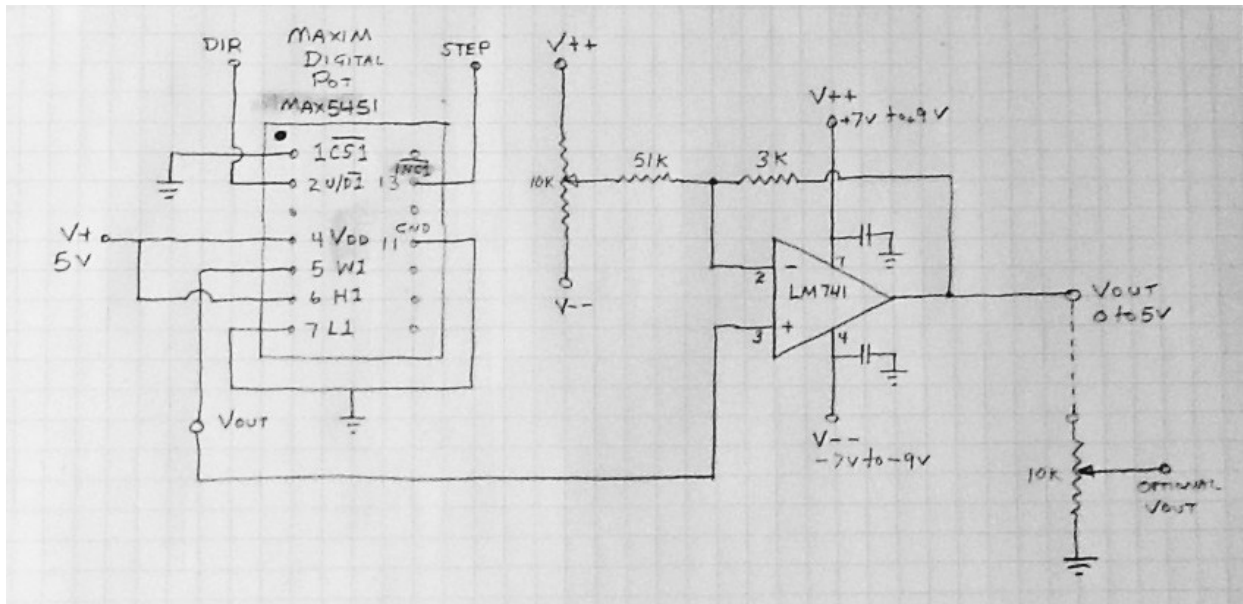 DIR
MAXIM
DIGITAL
POT
MAX5451
STEP
1 C̅S̅1̅
2 U/D̅1̅
I̅N̅C̅1̅
13
4 VDD
GND
11
5 W1
6 H1
7 L1
V+
5V
VOUT
V++
10K
V--
51K
3K
V++
+7V to +9V
2 -
3 +
7
LM741
4
V--
-7V to -9V
VOUT
0 to 5V
10K
OPTIONAL
VOUT